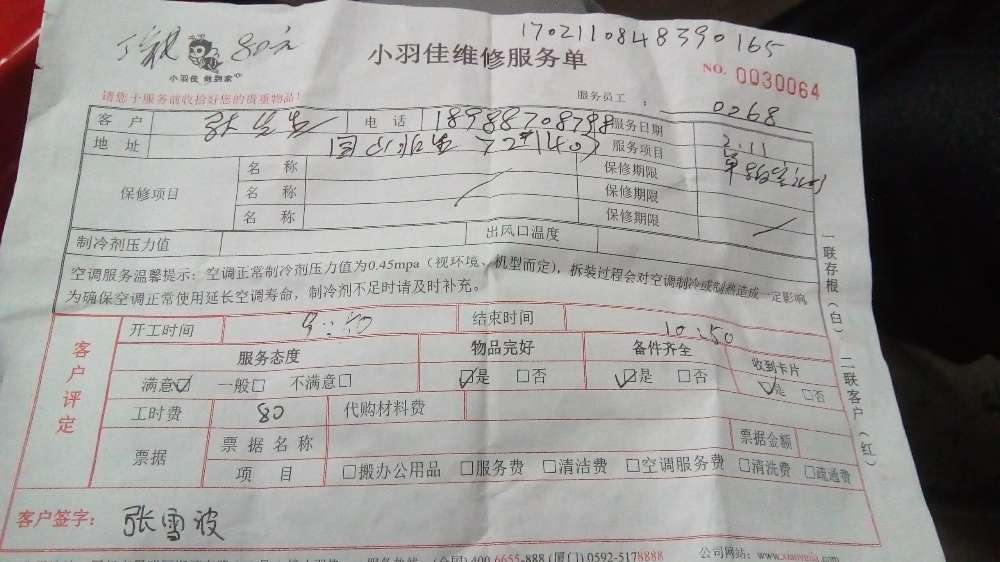 80元
170211084839 0165
小羽佳维修服务单
小羽佳 做到家
NO. 0030064
请您于服务前收拾好您的贵重物品!
服务员工: 0268
客户 张先生 电话 18988708798 服务日期 2.11
地址 72#1403 服务项目
保修项目 名称 保修期限
名称 保修期限
名称 保修期限
制冷剂压力值 出风口温度
空调服务温馨提示: 空调正常制冷剂压力值为0.45mpa(视环境、机型而定), 拆装过程会对空调制冷或制热造成一定影响
为确保空调正常使用延长空调寿命, 制冷剂不足时请及时补充。
客户评定
开工时间 结束时间 10:50
服务态度 物品完好 备件齐全 收到卡片
满意☑ 一般□ 不满意□ ☑是 □否 ☑是 □否 ☑是 □否
工时费 80 代购材料费
票据 票据名称 票据金额
项目 □搬办公用品 □服务费 □清洁费 □空调服务费 □清洗费 □疏通费
客户签字: 张雪波
一联存根(白) 二联客户(红)
(全国)400 6655-888 (厦门)0592-5178888 公司网站: